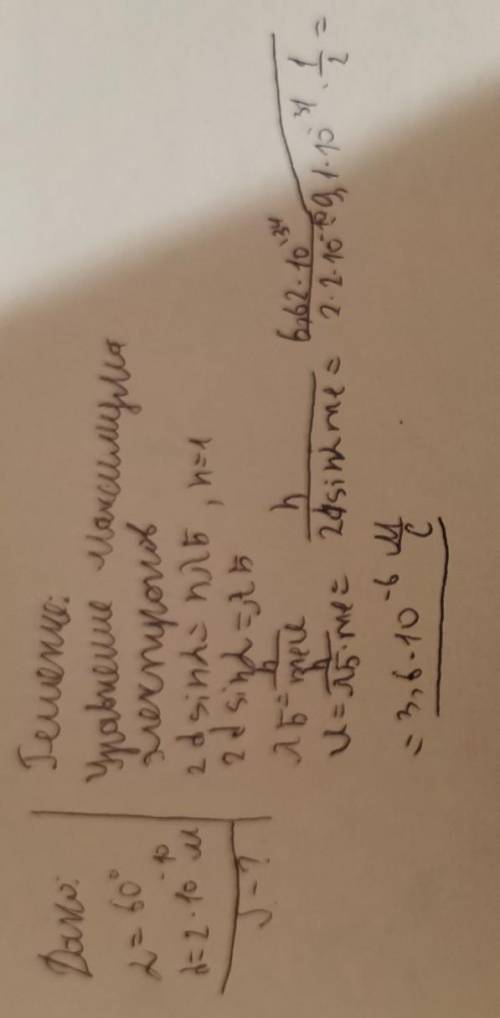 Дано:
α = 60°
d = 2 · 10⁻¹⁰ м
υ = ?
Решение:
Уравнение максимума
электронов
2d sinα = nλБ, n=1
2d sinα = λБ
λБ = h/meu
u = h/λБ·me = h/2d sinα me = 6,62 · 10⁻³⁴/2 · 2 · 10⁻¹⁰ · 9,1 · 10⁻³¹ · 1/2 =
= 3,6 · 10⁻⁶ м/с